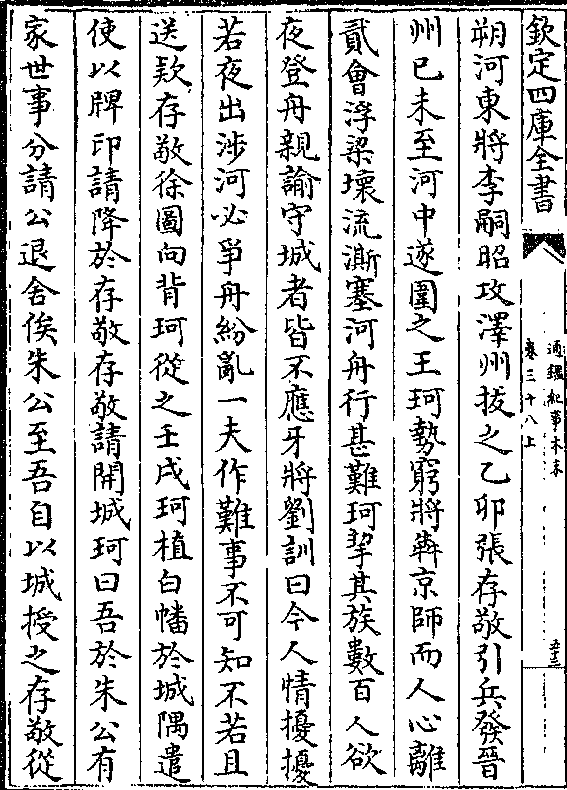 欽定四庫全書
通鑑紀事本末
卷三十八上
五十三
朔河東將李嗣昭攻澤州拔之乙卯張存敬引兵發晉
州已未至河中遂圍之王珂勢窮將奔京師而人心離
貳會浮梁壞流澌塞河舟行甚難珂挈其族數百人欲
夜登舟親諭守城者皆不應牙將劉訓曰今人情擾擾
若夜出涉河必爭舟紛亂一夫作難事不可知不若且
送款存敬徐圖向背珂從之壬戌珂植白幡於城隅遣
使以牌印請降於存敬存敬請開城珂曰吾於朱公有
家世事分請公退舍俟朱公至吾自以城授之存敬從